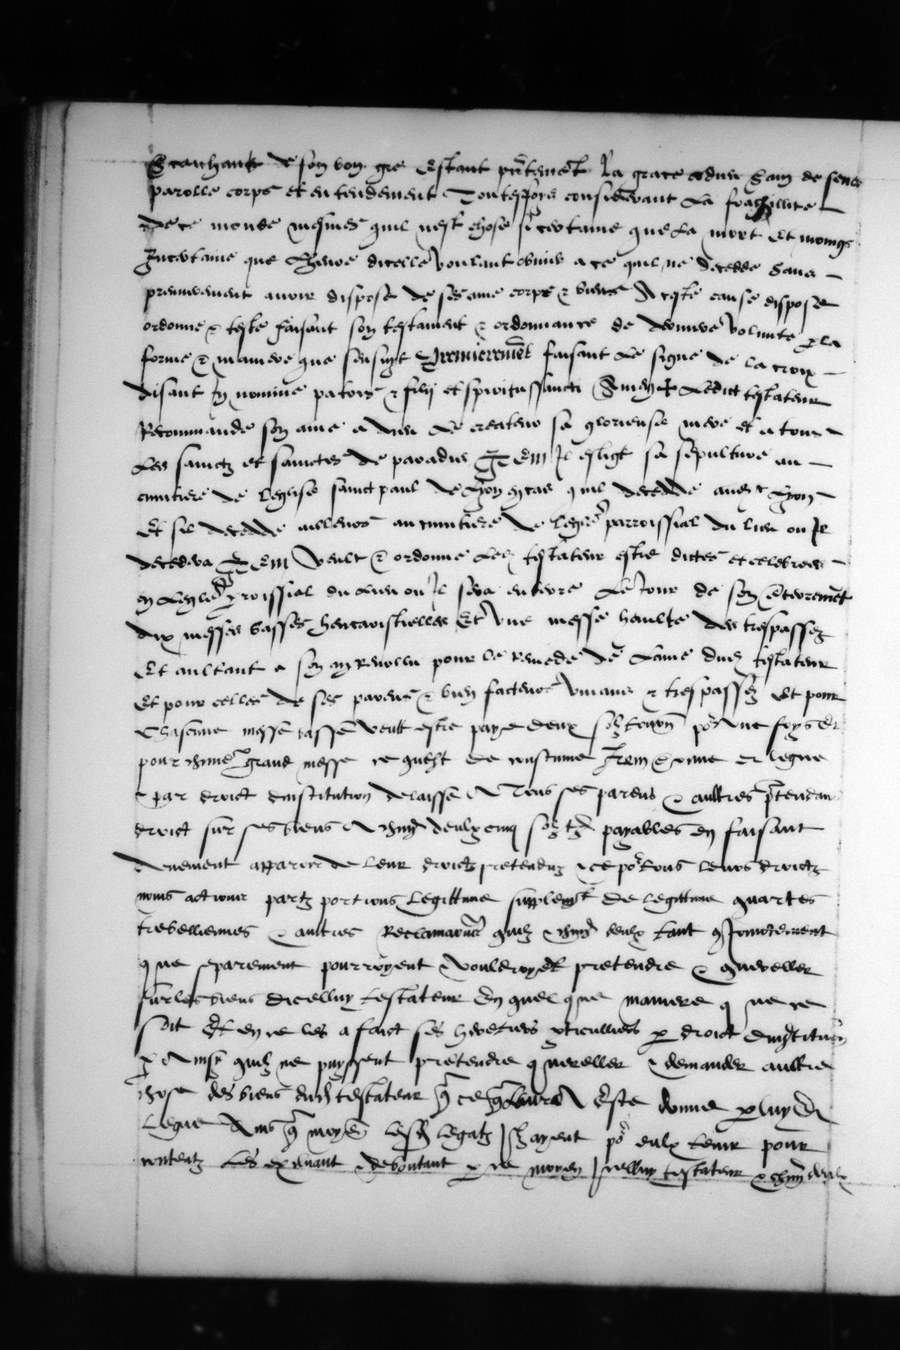 Scaichant de son bon gre estant presentement la grace a dieu sain de sens
parolle corps et entendement Toutesfoys considerant la fragillite
de ce monde mesmes quil nest chose si certaine que la mort et moings
Incertaine que lheure dicelle voulant obvier a ce quil ne decedde sans
premierement avoir dispose de ses ame corps & biens A ceste cause dispose
ordonne & teste faisant son testament & ordonnance de derniere volunte p la
forme & maniere que sensuyt Premierement faisant le signe de la croix
disant In nomine patris & filij et spiritussancti Amen ledict testateur
Recommande son ame a dieu le createur sa glorieuse mere et a tous
les sainctz et sainctes de paradis Item Il eslict sa sepulture au
cimitiere de leglise sainct paul de Lyon en cas quil decedde audict Lyon
Et sil decedde ailleurs au cimitiere de leglise parroissial du lieu ou Il
decedera Item veult & ordonne led testateur estre dictes et celebrees
en leglise parroissial du lieu ou Il sera enterre le Jour de son enterrement
dix messes basses et une messe haulte des trespassez
Et aultant a son an revollu pour le remede de lame dud testateur
Et pour celles de ses parens & bien facteurs vivans & trespassez Et pour
Chascune messe basse veult estre paye deux solz tourn pour une foys Et
pour grand messe ce quest de coustume Item donne et legue
& par droict dinstitution delaisse A Tous ses parens & aultres pretendans
droict sur ses biens A chun deulx cinq solz tz payables en faisant
duement apparoir de leur droictz pretenduz & ce pour tous leurs droictz
noms actions partz portions legittime supplement de legittime quartes
trebellienes & aultres Reclamations quilz & chun deulx tant conjoinctement
que separement pourroyent & vouldroyent pretendre & quereller
sur les biens dicelluy testateur En quelque maniere que ce
soit Et en ce les a faict ses heretiers particulliers p droict dinstitution
& Ainsi quilz ne puyssent pretendre quereller & demander aultre
chose des biens dud testateur que ce Este donne p luy &
legue Ains que moyen lesd legatz Ilz ayent pour eulx tenir pour
contentz les excluant & deboutant p ce moyen Icelluy testateur & chun deulx